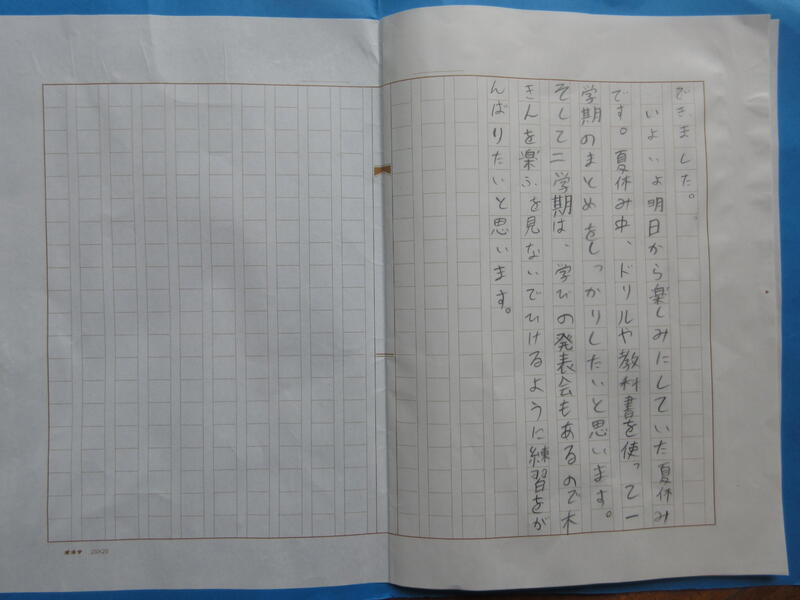 できました。
いよいよ明日から楽しみにしていた夏休み
です。夏休み中、ドリルや教科書を使って一
学期のまとめをしっかりしたいと思います。
そして二学期は、学びの発表会もあるので木
きんを楽ふを見ないでひけるように練習をが
んばりたいと思います。
20×20